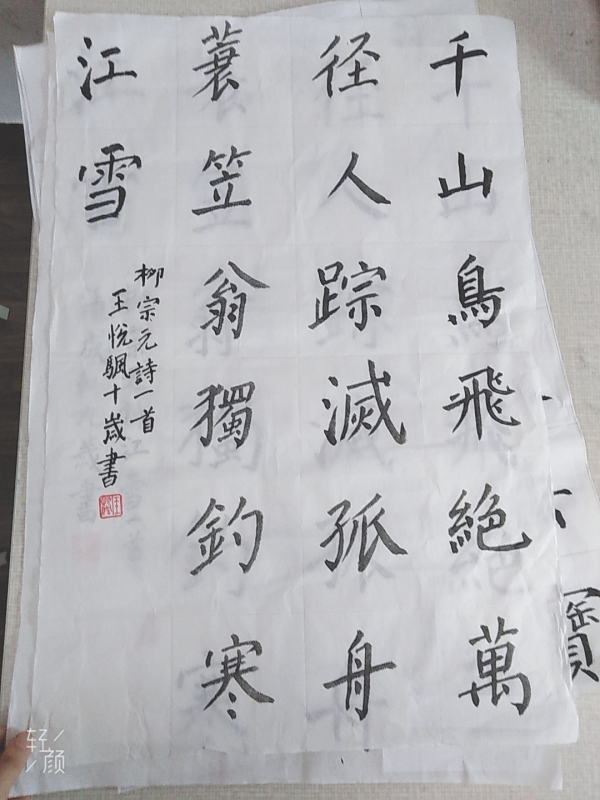 千山鳥飛絶萬
径人踪滅孤舟
蓑笠翁獨釣寒
江雪
柳宗元詩一首
王悅颿十歲書
轻颜